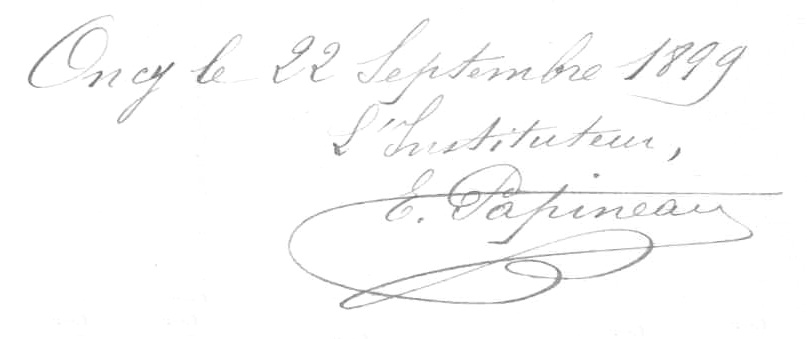 Oncy le 22 Septembre 1899
L'Instituteur,
E. Papineau